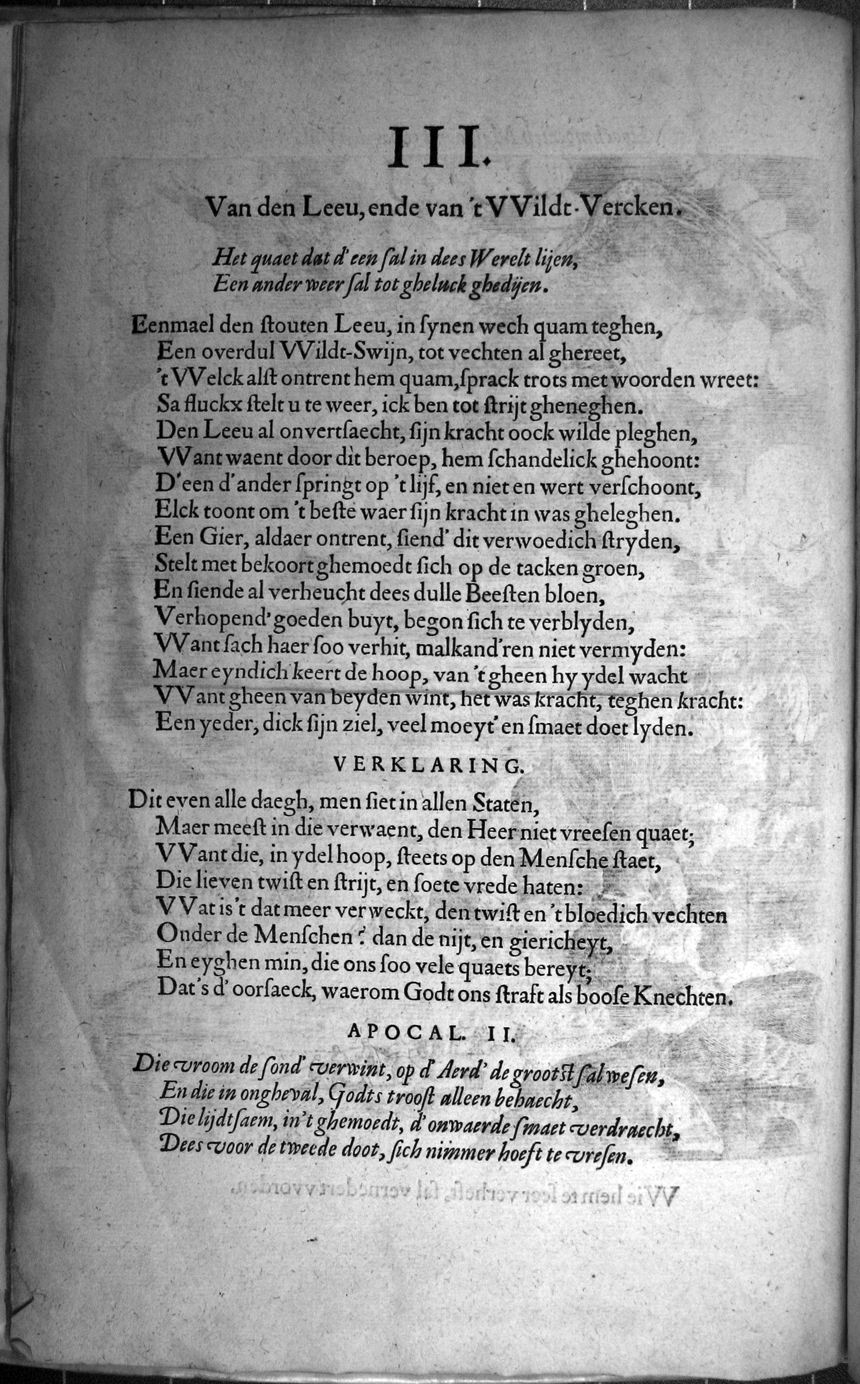 III.
Van den Leeu, ende van 't VVildt-Vercken.
Het quaet dat d'een ſal in dees Werelt lijen,
Een ander weer ſal tot gheluck ghedijen.
Eenmael den ſtouten Leeu, in ſynen wech quam teghen,
Een overdul VVildt-Swijn, tot vechten al ghereet,
't VVelck alſt ontrent hem quam, ſprack trots met woorden wreet:
Sa fluckx ſtelt u te weer, ick ben tot ſtrijt gheneghen.
Den Leeu al onvertſaecht, ſijn kracht oock wilde pleghen,
VVant waent door dit beroep, hem ſchandelick ghehoont:
D'een d'ander ſpringt op 't lijf, en niet en wert verſchoont,
Elck toont om 't beſte waer ſijn kracht in was gheleghen.
Een Gier, aldaer ontrent, ſiend' dit verwoedich ſtryden,
Stelt met bekoort ghemoedt ſich op de tacken groen,
En ſiende al verheucht dees dulle Beeſten bloen,
Verhopend' goeden buyt, begon ſich te verblyden,
VVant ſach haer ſoo verhit, malkand'ren niet vermyden:
Maer eyndich keert de hoop, van 't gheen hy ydel wacht
VVant gheen van beyden wint, het was kracht, teghen kracht:
Een yeder, dick ſijn ziel, veel moeyt' en ſmaet doet lyden.
VERKLARING.
Dit even alle daegh, men ſiet in allen Staten,
Maer meeſt in die verwaent, den Heer niet vreeſen quaet;
VVant die, in ydel hoop, ſteets op den Menſche ſtaet,
Die lieven twiſt en ſtrijt, en ſoete vrede haten:
VVat is 't dat meer verweckt, den twiſt en 't bloedich vechten
Onder de Menſchen? dan de nijt, en giericheyt,
En eyghen min, die ons ſoo vele quaets bereyt;
Dat's d' oorſaeck, waerom Godt ons ſtraft als booſe Knechten.
APOCAL. II.
Die vroom de ſond' verwint, op d' Aerd' de grootſt ſal weſen,
En die in ongheval, Godts trooſt alleen behaecht,
Die lijdtſaem, in 't ghemoedt, d' onwaerde ſmaet verdraecht,
Dees voor de tweede doot, ſich nimmer hoeft te vreſen.
VVie hem te ſeer verheft, ſal vernedert vvorden.